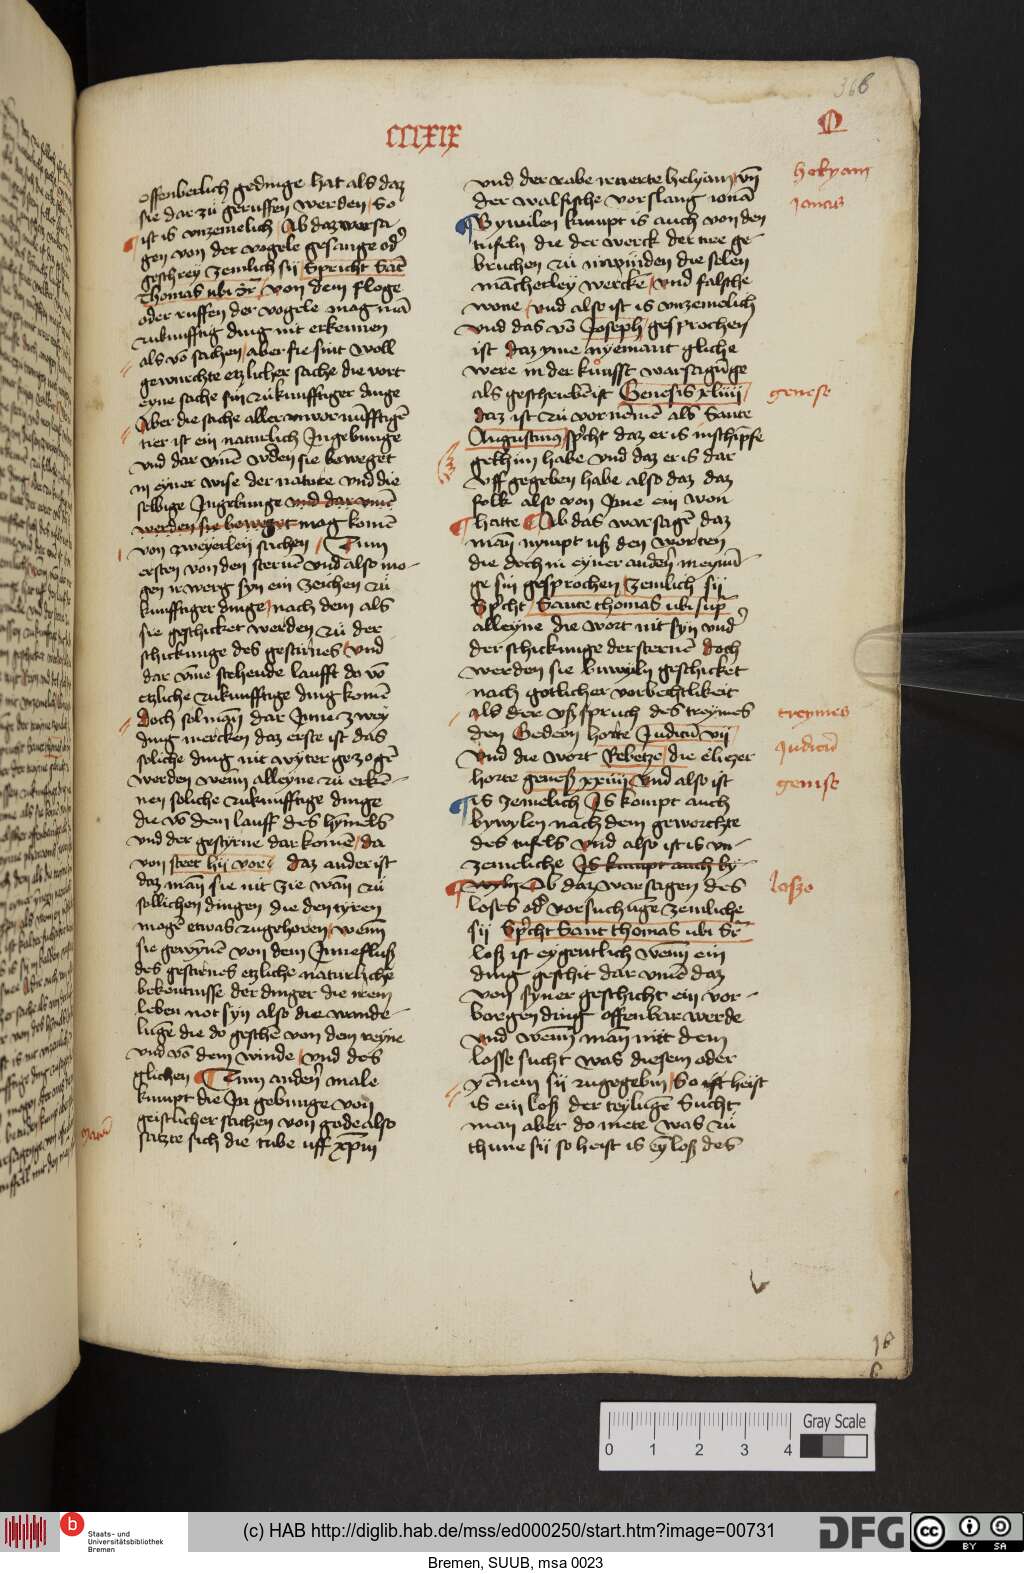 366
CCCXIX
O
offenberlich gedinge hat als daz
sie dar zü geruffen werden / so
ist is vnzemelich / Ab daz worsa
gen von der vogele gesange od'
geschrey zemlich sÿ Spricht Sāt
Thomas ubi sr̄ / von dem floge
oder ruffen der vogele mag mā
zukunfftig ding nit erkennen
als vō sachen / aber sie sint woll
gewurchte etzlicher sache die vort
eyne sache sin zükunfftiger dinge
Aber die sache aller vnvornufftigē
tier ist ein naturlich Ingebunge
vnd dar vmē w'den sie beweget
in eyner wise der nature vnd die
selbige Ingebunge vnd dar vmē
werden sie beweget mag komē
von zweyerleÿ sachen / Tzum
ersten von den sternē vnd also mo-
gen ir werg syn ein zeichen zü
kunfftiger dinge / nach dem als
sie geschicket werden zü der
schickunge des gestirnes / vnd
dar vme stehende laufft do vō
etzliche zukunfftige ding komē
doch sol man dar Inne zwey
ding mercken daz erste ist das
soliche ding nit wyter gezogē
werden wenn alleyne zü erkē-
nen soliche zukunfftige dinge
die vō dem lauff des hymels
vnd der gestyrne dar komē / da
von steet hÿ vor / daz ander ist
daz man sie nit zie wan zü
sollichen dingen die den tyren
mogē etwas zugehoren / wenn
sie gewynnē von dem Inneflusz
des gestirnes etzliche naturliche
bekentnisse der dinger die irem
leben not syn also die wande-
lungē die do geschē von dem reyne
vnd vō dem winde / vnd des
glichen Tzum andern male
kumpt die In gebunge von
geistlicher sachen von gode also
satzte sich die tube uff xpm
vnd der rabe nerte helyam vn
der walfische vorslang ionā
Bywilen kumpt is auch von den
tufeln die der werck der tire ge-
bruchen zü
macherley wercke / vnd falsche
wone / vnd also ist is vnzemelich
vnd das vō Joseph / gesprochen
ist daz yme nyemant gliche
were in der kunst warsagūge
als geschriebē ist Genesis xliiii
daz ist zü vornemē als Sante
Augustinus spcht daz er is in schīpfe
geth in habe vnd daz er is dar
vff gegeben habe also daz daz
folk also von Ime ein won
hatte Ab das warsagē daz
man nympt usz den worten
die doch in eyner andern meynū-
ge sin gesprochen / zemlich sÿ
Spcht / Sante thomas ubi sup̄
alleyne die wort nit syn vnd'
der schickunge der sternē doch
werden sie biwyln geschicket
nach gotlicher vorbechtlikeit
als der vszspruch des treymes
den Gedeon horte Judicū vii
Vnd die wort Rebetze / die eliezer
horte genesz xxiiii Vnd also ist
is zemelich Js kompt auch
bywylen nach dem geworchte
des tufels vnd also ist is vn-
zemeliche Js kumpt auch by-
wyln Ab daz warsagen des
loses od' vorsuchūge zemliche
sÿ Spcht Sant thomas ubi Sr̄
losz ist eygentlich wenn ein
ding geschit dar vmē daz
von syner geschicht ein vor-
borgen ding offenbar werde
vnd wenn man mit dem
losse sucht was diesem oder
yenem sÿ zugegebin / so ist heist
is ein losz der teylungē Sucht
man aber do mete was zü
thune sÿ so heist is eȳ losz des
helyam
Jonas
genese
treymes
Judicū
genise
losze
16
6
Gray Scale
0 1 2 3 4
b
Staats- und
Universitätsbibliothek
Bremen
(c) HAB http://diglib.hab.de/mss/ed000250/start.htm?image=00731
DFG
cc BY SA
Bremen, SUUB, msa 0023